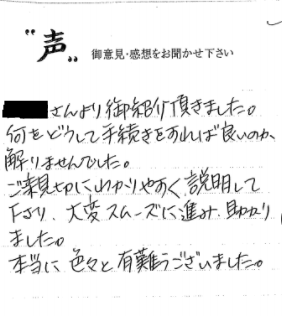 "声" 御意見・感想をお聞かせ下さい
さんより御紹介頂きました。
何をどうして手続きをすれば良いのか、
解りませんでした。
ご親切にわかりやすく説明して
下さり、大変スムーズに進み、助かり
ました。
本当に色々と有難うございました。